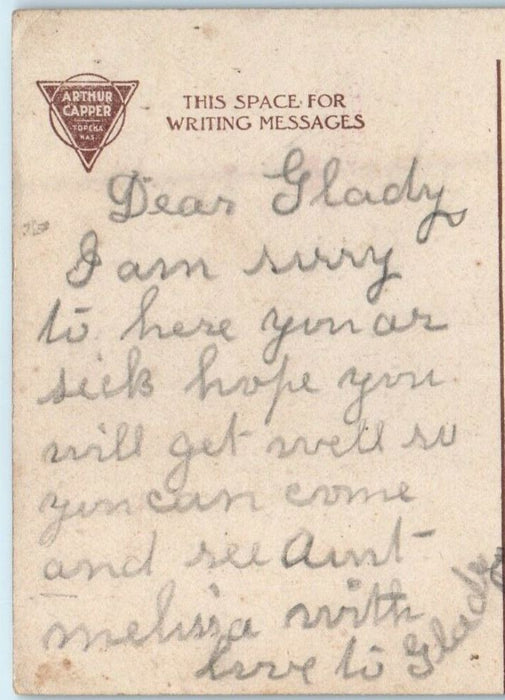 ARTHUR
CAPPER
TOPEKA
KAS.
THIS SPACE FOR
WRITING MESSAGES
Dear Glady
I am surry
to here you ar
sick hope you
will get well so
you can come
and see Aunt
melissa with
love to Glady